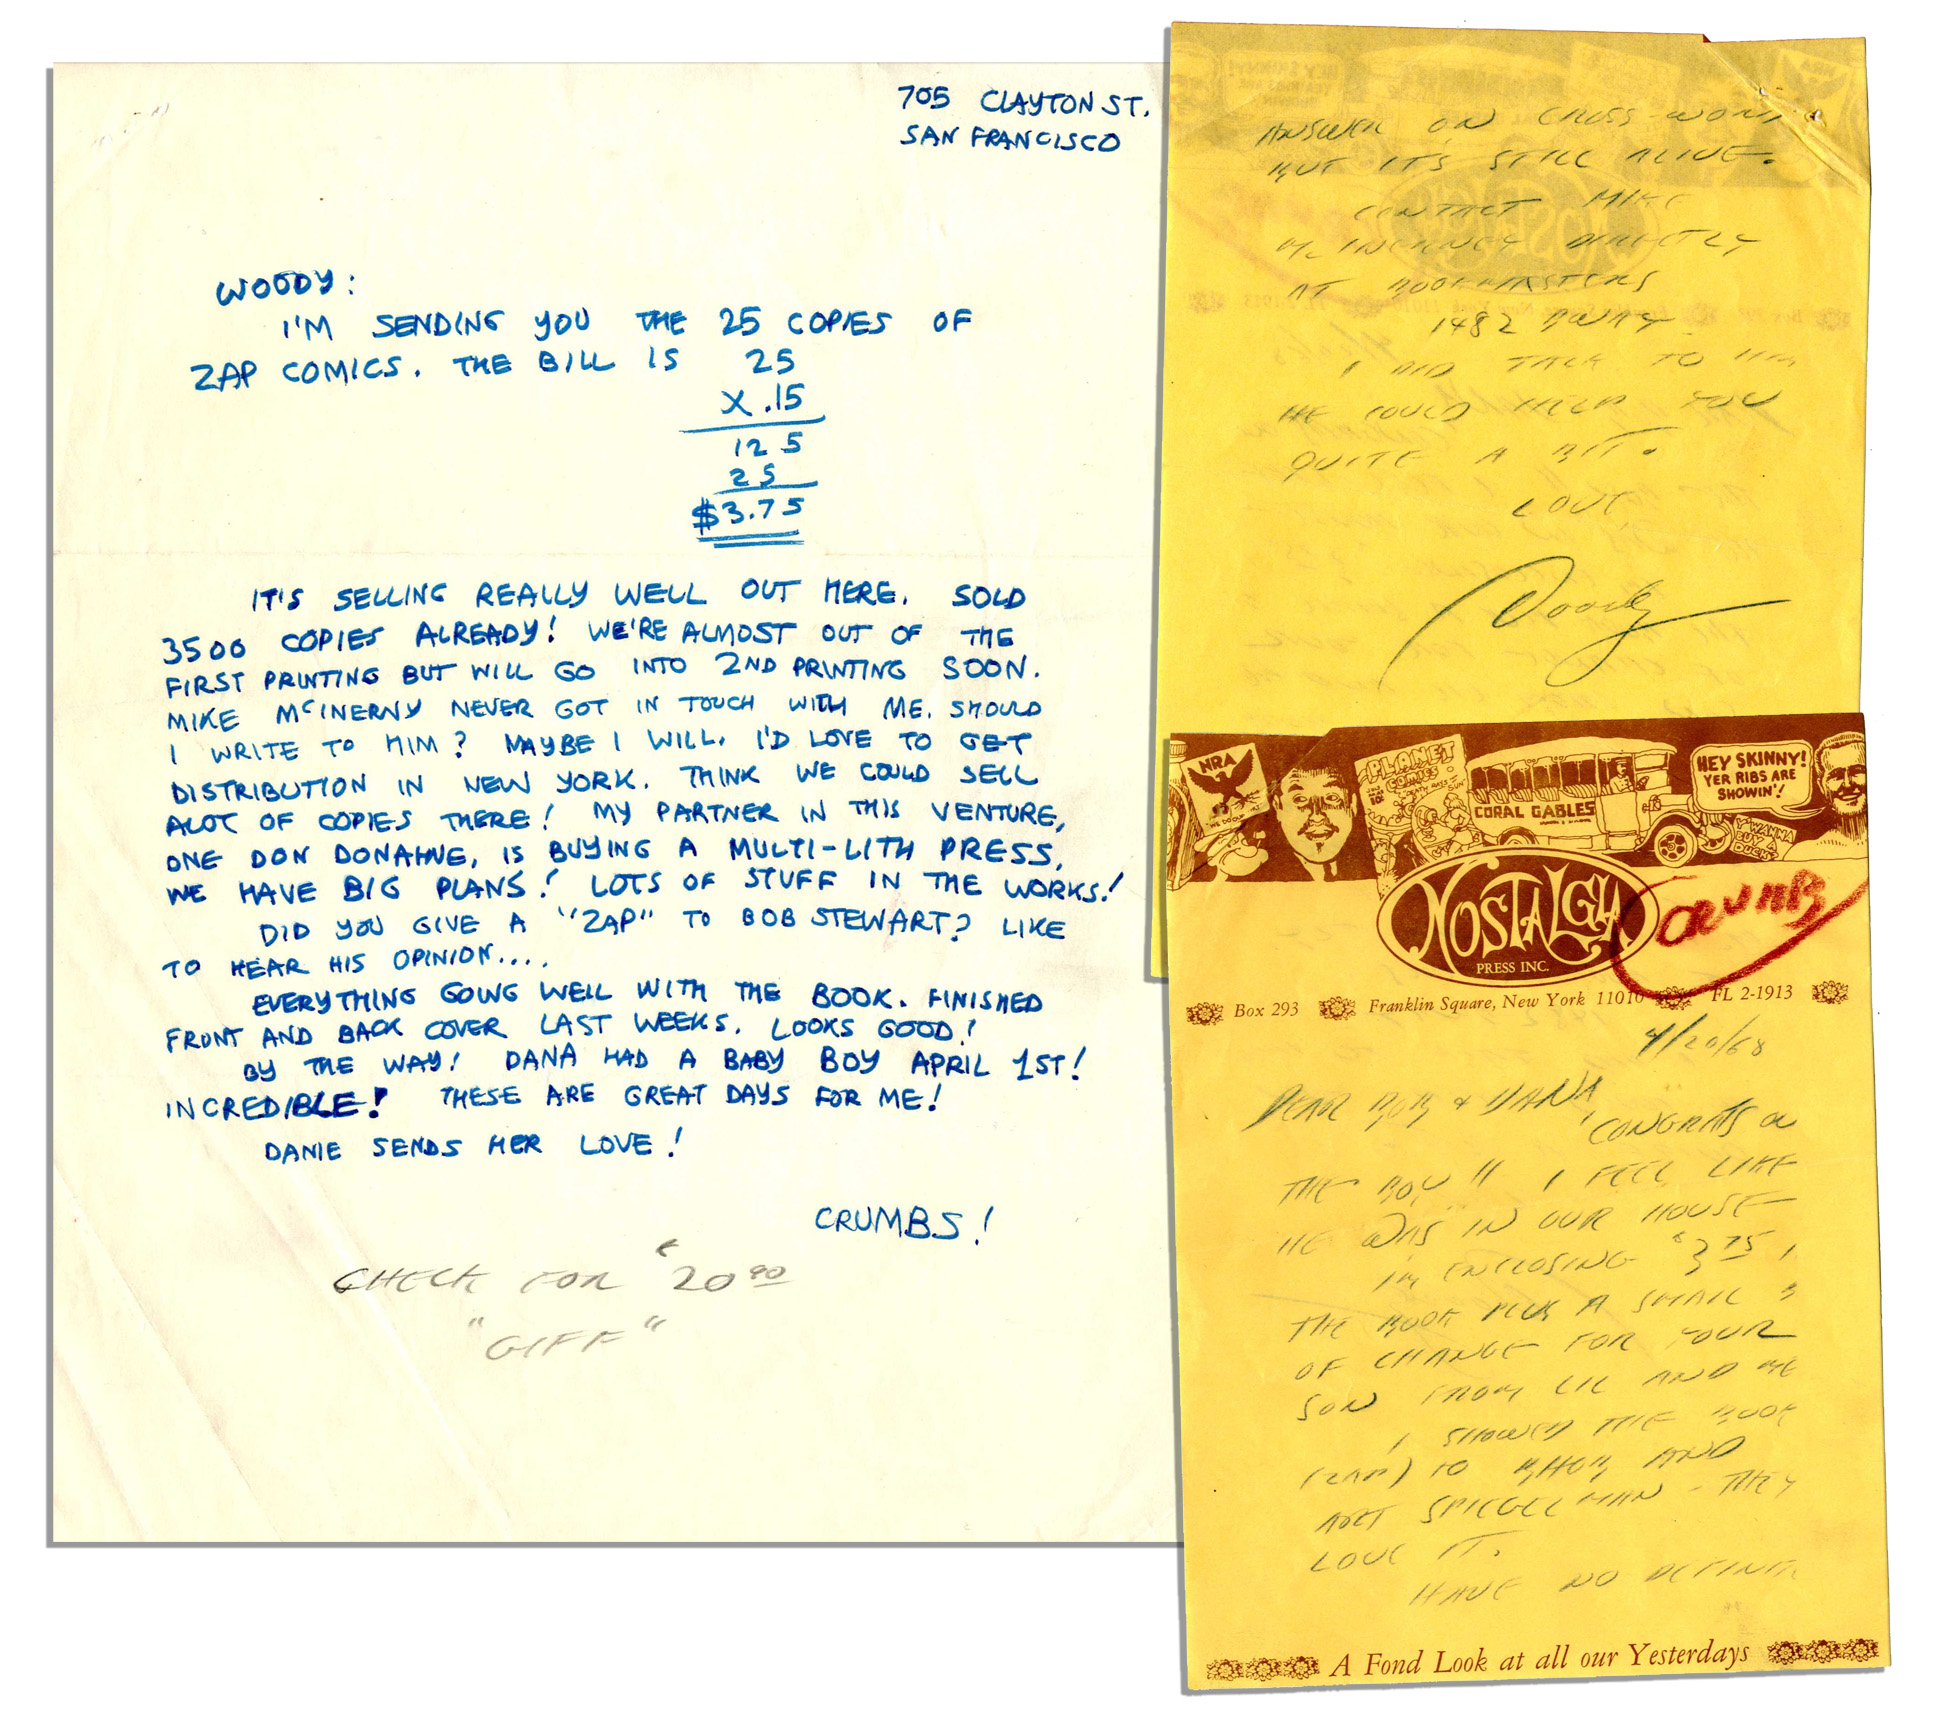 705 CLAYTON ST.
SAN FRANCISCO
WOODY:
I'M SENDING YOU THE 25 COPIES OF
ZAP COMICS. THE BILL IS 25
X .15
125
25
$3.75
IT'S SELLING REALLY WELL OUT HERE. SOLD
3500 COPIES ALREADY! WE'RE ALMOST OUT OF THE
FIRST PRINTING BUT WILL GO INTO 2ND PRINTING SOON.
MIKE McINERNY NEVER GOT IN TOUCH WITH ME. SHOULD
I WRITE TO HIM? MAYBE I WILL. I'D LOVE TO GET
DISTRIBUTION IN NEW YORK. THINK WE COULD SELL
ALOT OF COPIES THERE! MY PARTNER IN THIS VENTURE,
ONE DON DONAHUE, IS BUYING A MULTI-LITH PRESS.
WE HAVE BIG PLANS! LOTS OF STUFF IN THE WORKS!
DID YOU GIVE A "ZAP" TO BOB STEWART? LIKE
TO HEAR HIS OPINION....
EVERYTHING GOING WELL WITH THE BOOK. FINISHED
FRONT AND BACK COVER LAST WEEKS. LOOKS GOOD!
BY THE WAY! DANA HAD A BABY BOY APRIL 1ST!
INCREDIBLE! THESE ARE GREAT DAYS FOR ME!
DANIE SENDS HER LOVE!
CRUMBS!
CHECK FOR $20.90
"GIFF"
ANSWER ON CROSS-WORD
BUT IT'S STILL ALIVE.
CONTACT MIKE
McINERNEY DIRECTLY
AT BOOKMASTERS
1482 BWAY.
I DID TALK TO HIM
HE COULD HELP YOU
QUITE A BIT.
LOVE
Woody
NRA
WE DO OUR
PLANET
COMICS
10¢
CORAL GABLES
HEY SKINNY!
YER RIBS ARE
SHOWIN'!
Y'WANNA
BUY A
DUCK?
NOSTALGIA
PRESS INC.
CRUMB
Box 293 Franklin Square, New York 11010 FL 2-1913
4/20/68
DEAR BOB & DANA
CONGRATS ON
THE BOY!! I FEEL LIKE
HE WAS IN OUR HOUSE
I'M ENCLOSING $3.75,
THE BOOK PLUS A SMALL
OF CHANGE FOR YOUR
SON FROM LIL AND ME
I SHOWED THE BOOK
(ZAP) TO BHOB AND
ART SPIEGELMAN - THEY
LOVE IT.
HAVE NO DEFINITE
A Fond Look at all our Yesterdays